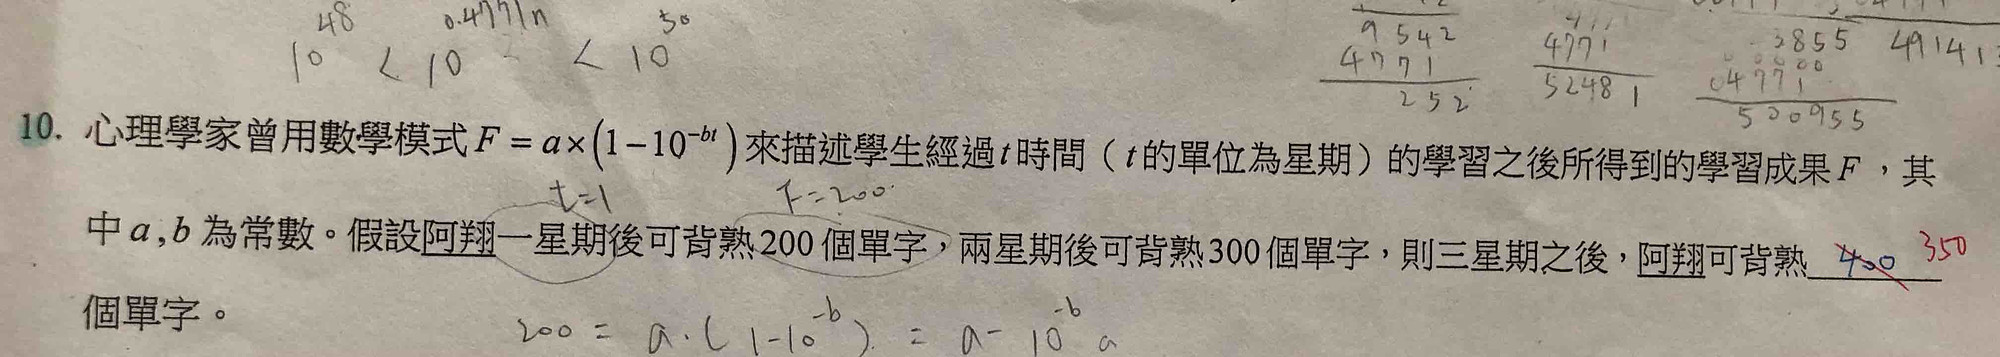 10^48 < 10^0.4771n < 10^50
9542
4771
252
4771
52481
2855
04771
500955
491413
10. 心理學家曾用數學模式 F = a×(1−10^−bt) 來描述學生經過 t 時間（t 的單位為星期）的學習之後所得到的學習成果 F，其
t=1 F=200
中 a , b 為常數。假設阿翔一星期後可背熟 200 個單字，兩星期後可背熟 300 個單字，則三星期之後，阿翔可背熟 400 350
個單字。
200 = a·(1−10^−b) = a − 10^−b a